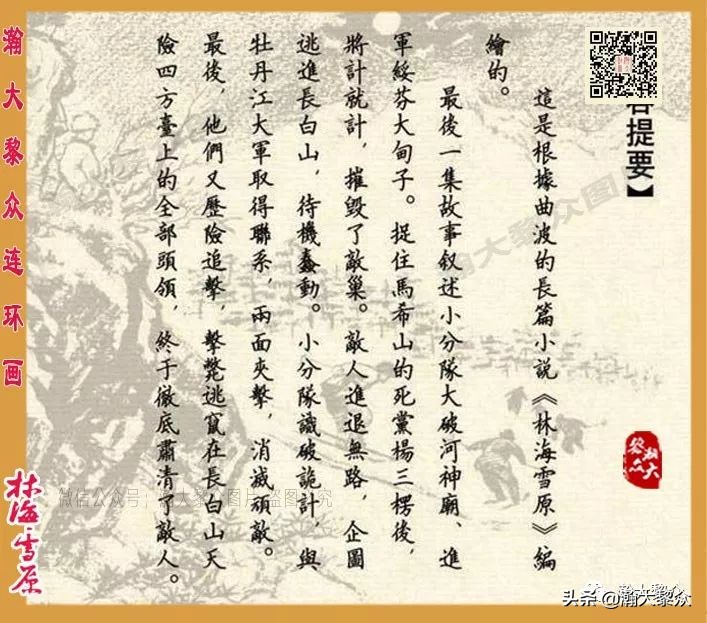 容提要】
這是根據曲波的長篇小說《林海雪原》編
繪的。
最後一集故事叙述小分隊大破河神廟、進
軍綏芬大甸子。捉住馬希山的死黨楊三楞後，
將計就計，摧毀了敵巢。敵人進退無路，企圖
逃進長白山，待機蠢動。小分隊識破詭計，與
牡丹江大軍取得聯系，兩面夾擊，消滅頑敵。
最後，他們又歷險追擊，擊斃逃竄在長白山天
險四方臺上的全部頭領，終于徹底肅清了敵人。
瀚大黎众连环画
林海雪原
瀚大黎众图
瀚大黎众
微信公众号：瀚大黎众图片盗图必究
瀚大黎众
头条@瀚大黎众